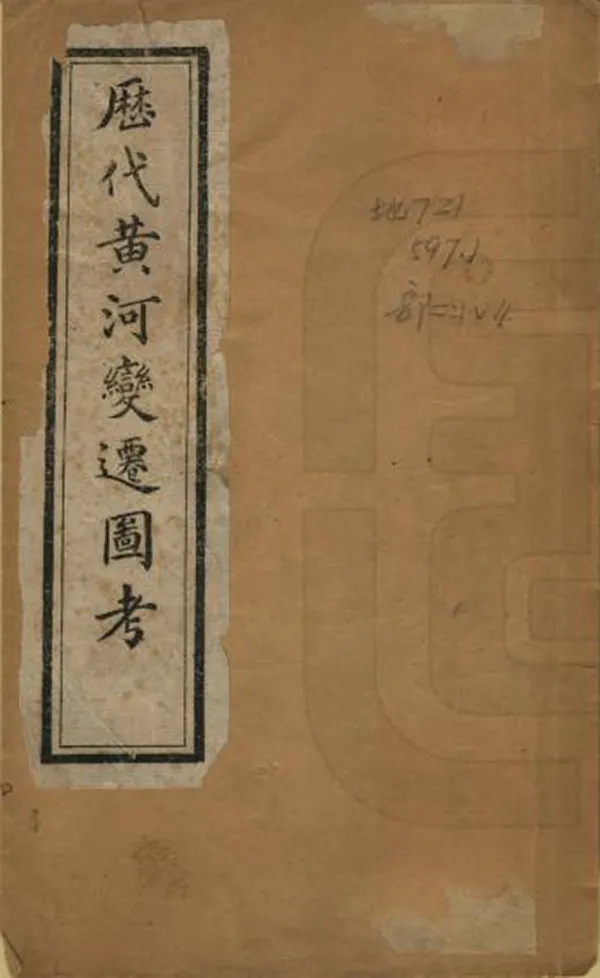 歷代黃河變遷圖考
地721
597.1